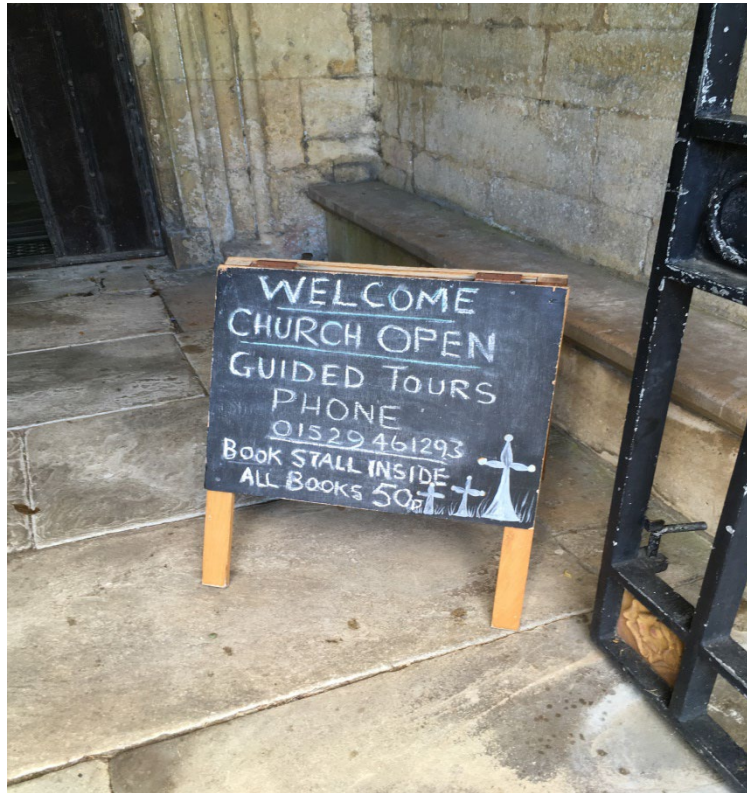 WELCOME
CHURCH OPEN
GUIDED TOURS
PHONE
01529 461293
BOOK STALL INSIDE
ALL BOOKS 50p